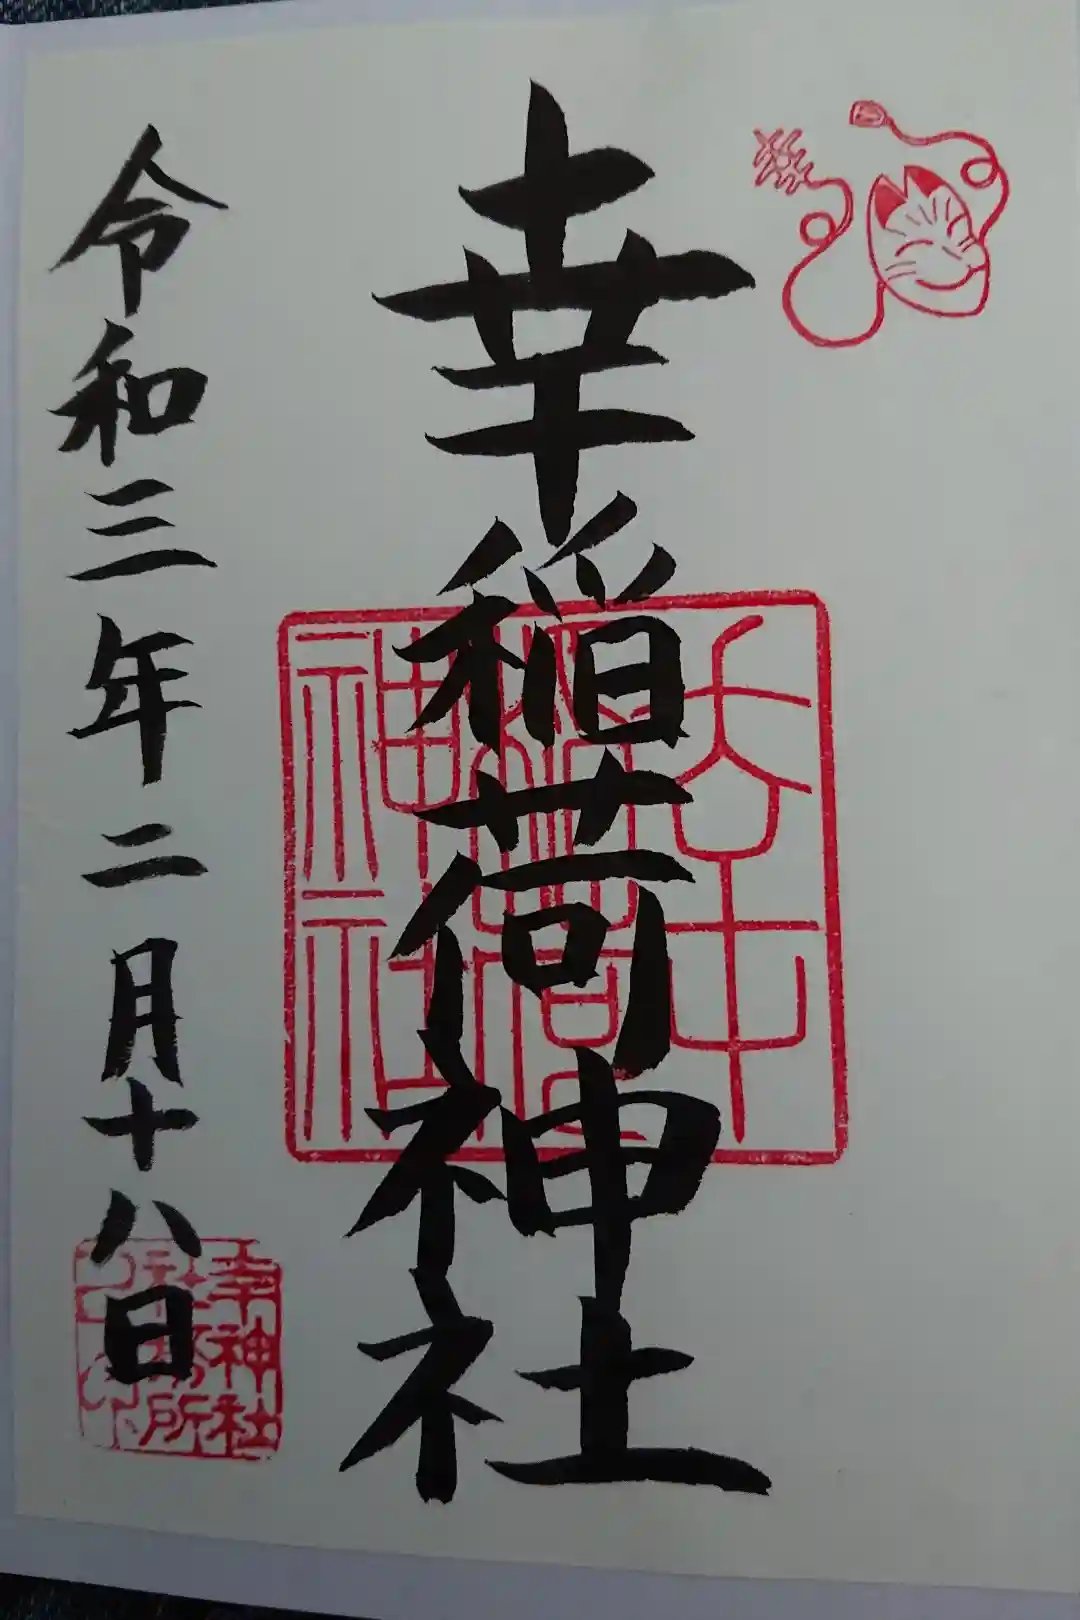 幸稲荷神社
令和三年二月十八日
幸稲荷神社
幸神社
社務所